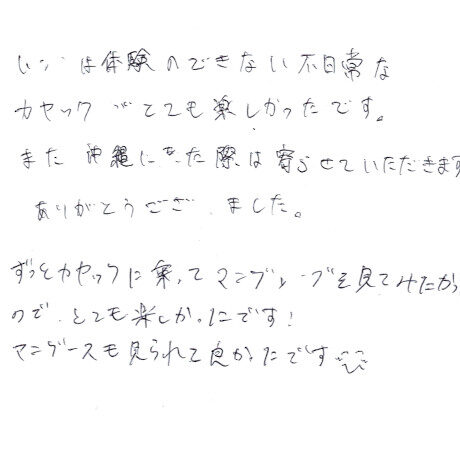 いつもは体験のできない不日常な
カヤックがとても楽しかったです。
また沖縄にきた際は寄らせていただきます
ありがとうござ ました。
ずっとカヤックに乗ってマングローブを見てみたかっ
ので、とても楽しかったです!
マングースも見られて良かったです